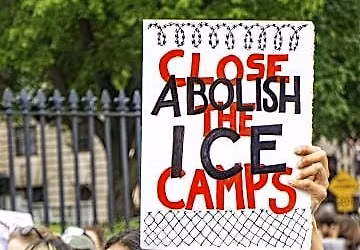 CLOSE
ABOLISH
THE
ICE
CAMPS